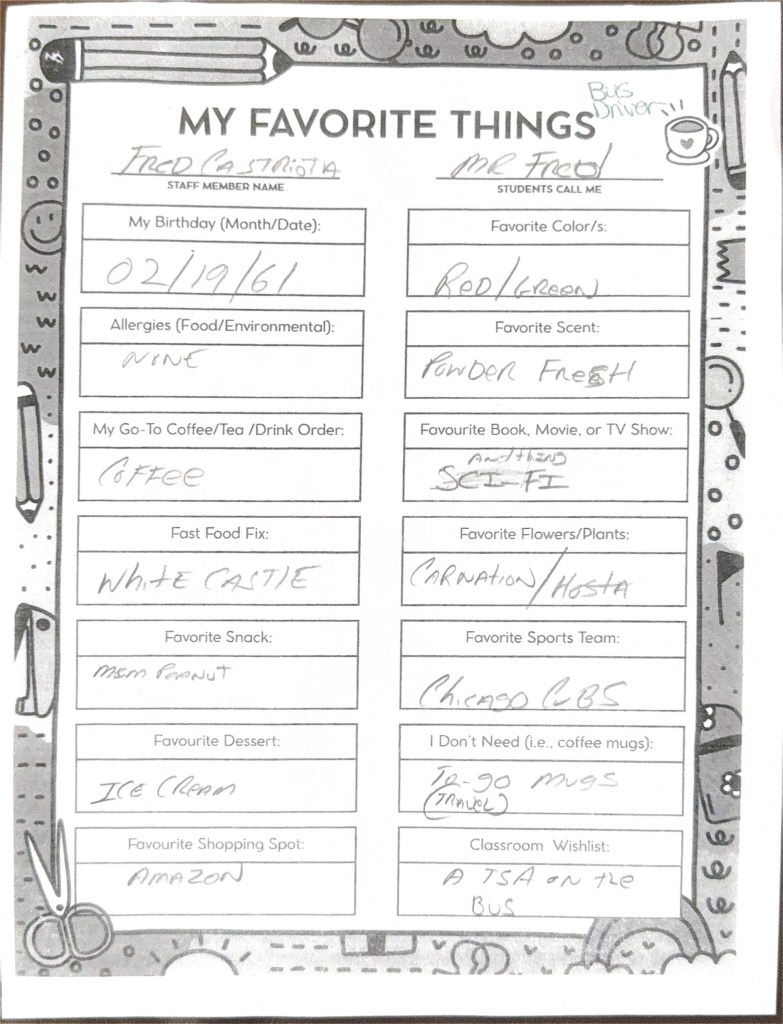 Bus
Driver
MY FAVORITE THINGS
FRED CASTRIOTA
STAFF MEMBER NAME
MR Fred
STUDENTS CALL ME
My Birthday (Month/Date):
02/19/61
Favorite Color/s:
RED/GREEN
Allergies (Food/Environmental):
NONE
Favorite Scent:
POWDER FRESH
My Go-To Coffee/Tea /Drink Order:
COFFEE
Favourite Book, Movie, or TV Show:
Anything
SCI-FI
Fast Food Fix:
WHITE CASTLE
Favorite Flowers/Plants:
CARNATION/HOSTA
Favorite Snack:
M&M PEANUT
Favorite Sports Team:
Chicago CUBS
Favourite Dessert:
ICE CREAM
I Don't Need (i.e., coffee mugs):
To-go mugs
(TRAVEL)
Favourite Shopping Spot:
AMAZON
Classroom Wishlist:
A TSA on the
BUS